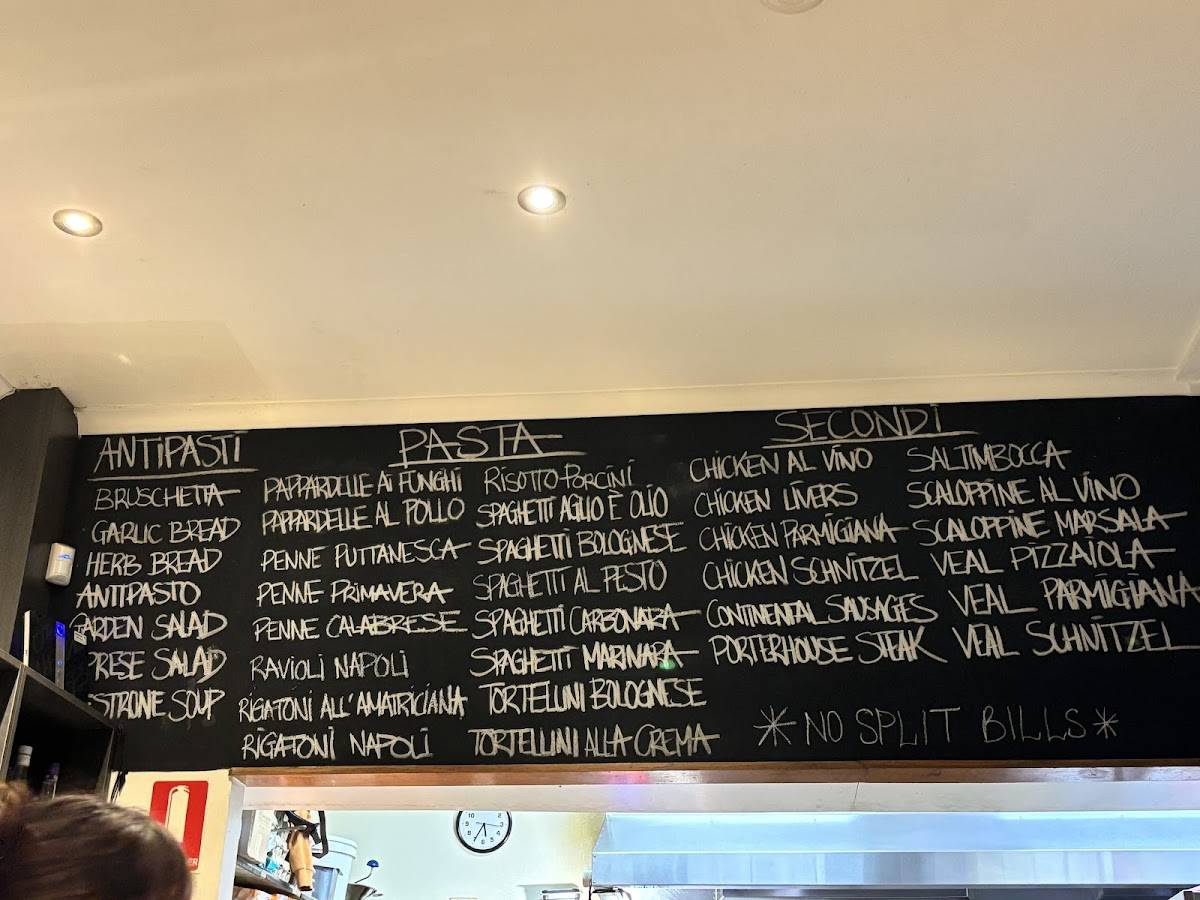 ANTIPASTI
BRUSCHETTA
GARLIC BREAD
HERB BREAD
ANTIPASTO
ARDEN SALAD
PRESE SALAD
STRONE SOUP
PASTA
PAPPARDELLE AI FUNGHI
PAPPARDELLE AL POLLO
PENNE PUTTANESCA
PENNE PRIMAVERA
PENNE CALABRESE
RAVIOLI NAPOLI
RIGATONI ALL'AMATRICIANA
RIGATONI NAPOLI
RISOTTO PORCINI
SPAGHETTI AGLIO È OLIO
SPAGHETTI BOLOGNESE
SPAGHETTI AL PESTO
SPAGHETTI CARBONARA
SPAGHETTI MARINARA
TORTELLINI BOLOGNESE
TORTELLINI ALLA CREMA
SECONDI
CHICKEN AL VINO
CHICKEN LIVERS
CHICKEN PARMIGIANA
CHICKEN SCHNITZEL
CONTINENTAL SAUSAGES
PORTERHOUSE STEAK
SALTIMBOCCA
SCALOPPINE AL VINO
SCALOPPINE MARSALA
VEAL PIZZAIOLA
VEAL PARMIGIANA
VEAL SCHNITZEL
* NO SPLIT BILLS *